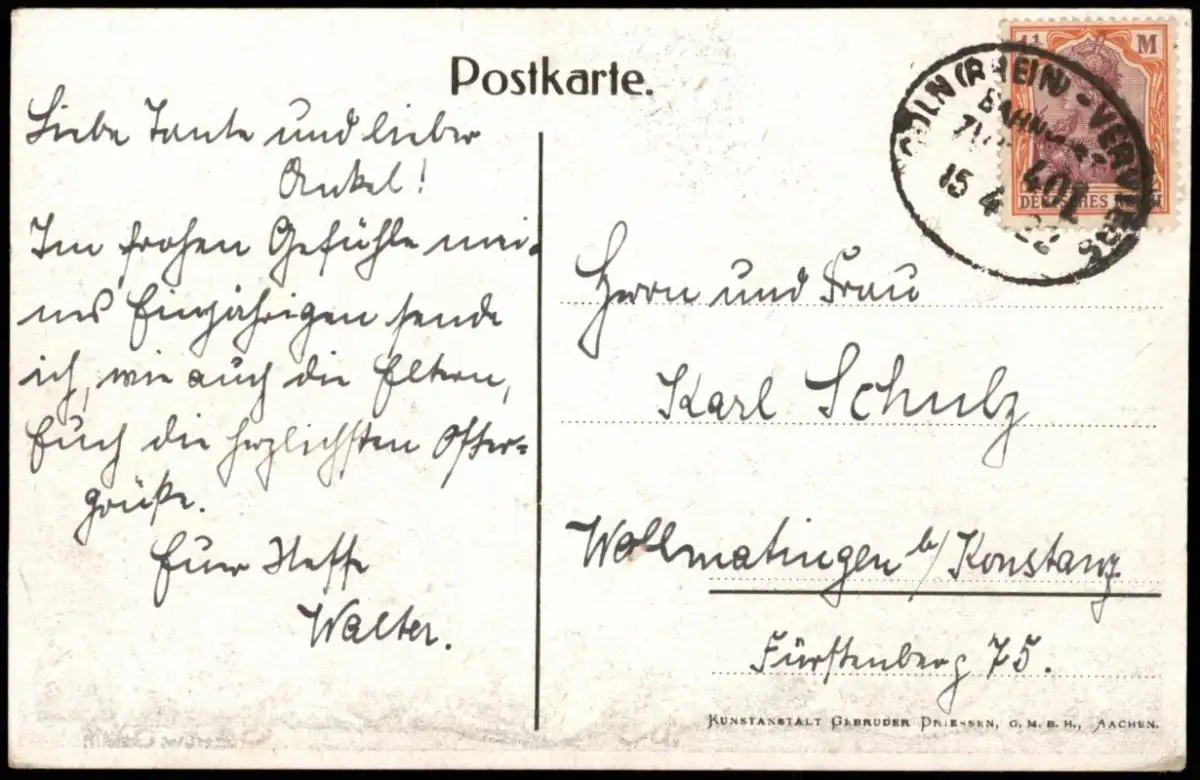 Postkarte.
Liebe Tante und lieber
Onkel!
Im frohen Gefühle mei-
nes Einjährigen sende
ich, wie auch die Eltern,
Euch die herzlichsten Oster-
grüße.
Euer Neffe
Walter.
1¼ M
DEUTSCHES REICH
CÖLN (RHEIN) - VERVIERS
BAHNPOST
ZUG 401
15 4 22
Herrn und Frau
Karl Schulz
Wollmatingen b/Konstanz
Fürstenberg 75.
KUNSTANSTALT GEBRÜDER DRIESSEN, G.M.B.H., AACHEN.